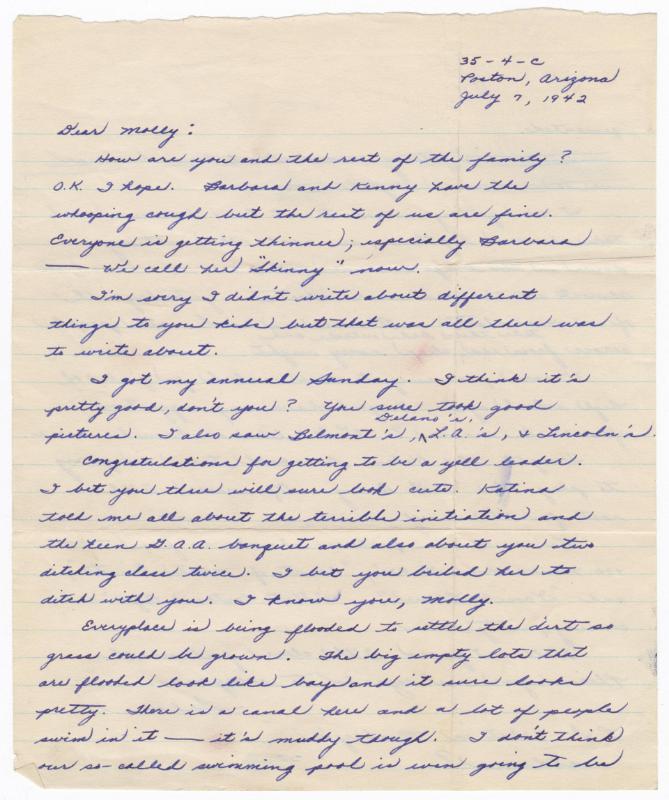 35-4-C
Poston, Arizona
July 7, 1942
Dear Molly:
How are you and the rest of the family?
O.K. I hope. Barbara and Kenny have the
whooping cough but the rest of us are fine.
Everyone is getting thinner; especially Barbara
— We call her "Skinny" now.
I'm sorry I didn't write about different
things to you kids but that was all there was
to write about.
I got my annual Sunday. I think it's
pretty good, don't you? You sure took good
pictures. I also saw Belmont's, Delano's, L.A.'s, & Lincoln's.
Congratulations for getting to be a yell leader.
I bet you three will sure look cute. Katina
told me all about the terrible initiation and
the keen G.A.A. banquet and also about you two
ditching class twice. I bet you bribed her to
ditch with you. I know you, Molly.
Everyplace is being flooded to settle the dirt so
grass could be grown. The big empty lots that
are flooded look like bays and it sure looks
pretty. There is a canal here and a lot of people
swim in it — it's muddy though. I don't think
our so-called swimming pool is even going to be